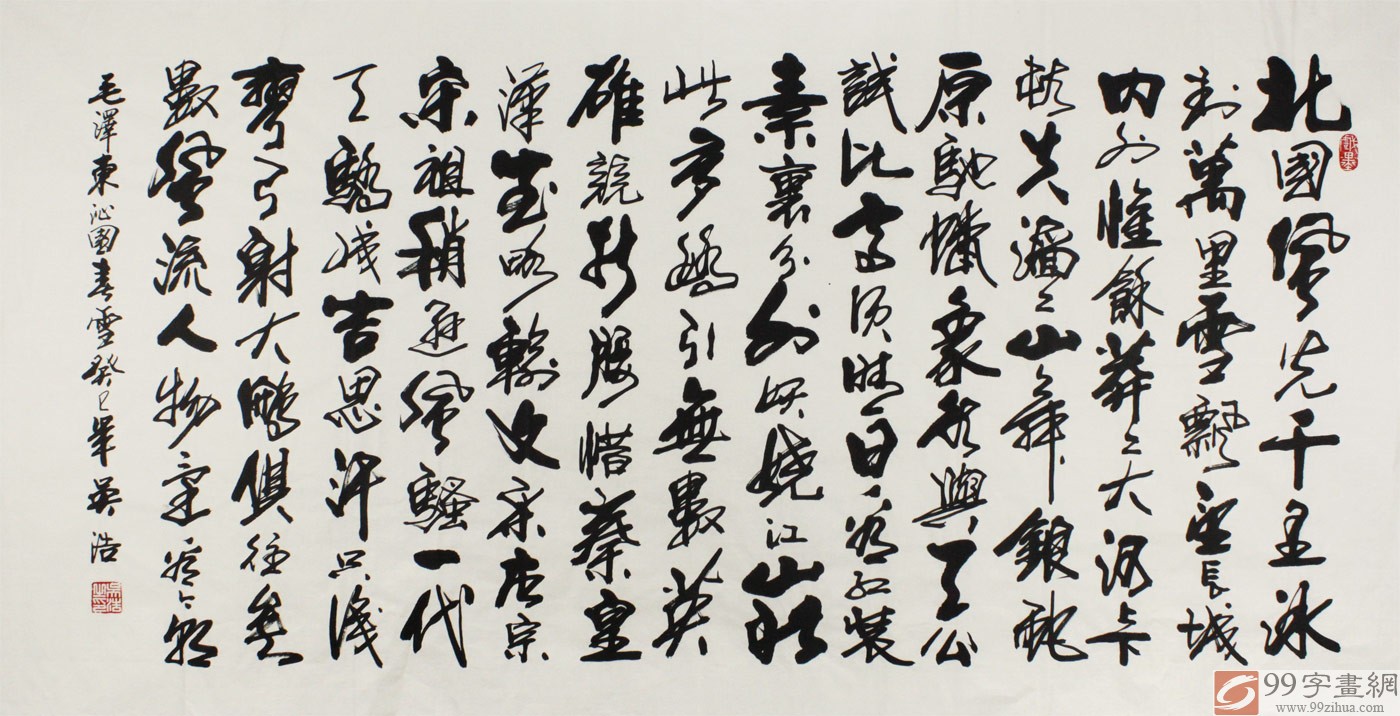 北國風光千里冰
封萬里雪飄望長城
内外惟餘莽々大河上下
頓失滔々山舞銀蛇
原馳蠟象欲與天公
試比高須晴日看紅裝
素裹分外妖嬈江山如
此多嬌引無數英
雄競折腰惜秦皇
漢武略輸文采唐宗
宋祖稍遜風騷一代
天驕成吉思汗只識
彎弓射大鵰俱往矣
數風流人物還看今朝
毛澤東沁園春雪癸巳年吳浩
99字畫網
www.99zihua.com